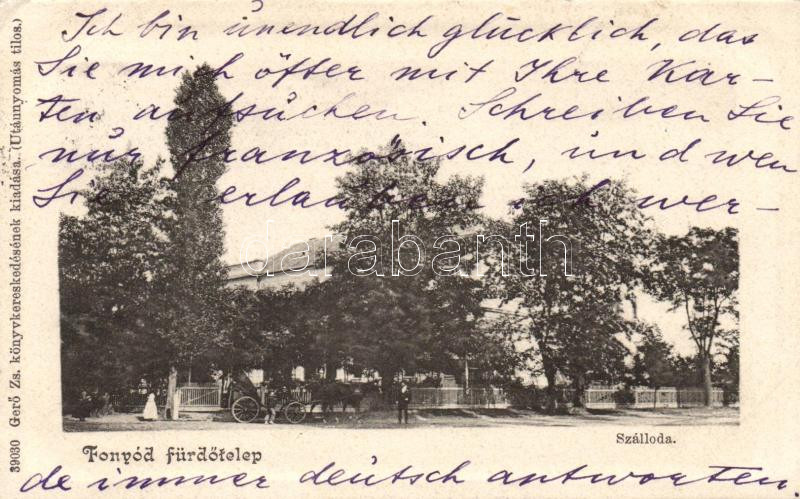 Ich bin unendlich glücklich, das
Sie mich öfter mit Ihre Kar-
ten aufsuchen. Schreiben Sie
nur französisch, und wen
Sie erlauben ich wer-
darabanth
39030 Gerő Zs. könyvkereskedésének kiadása. (Utánnyomás tilos.)
Fonyód fürdőtelep
Szálloda.
de immer deutsch antworten.